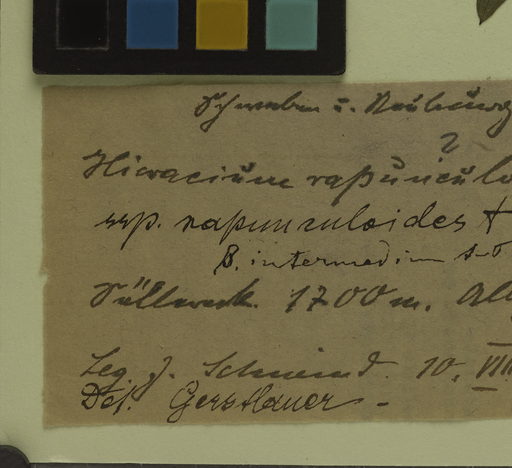 Schwaben u. Neuburg
?
Hieracium rapunculo
ssp. rapunculoides
β. intermedium
1700 m. Allg
Leg. J. Schmid. 10. VIII
Det. Gerstlauer -